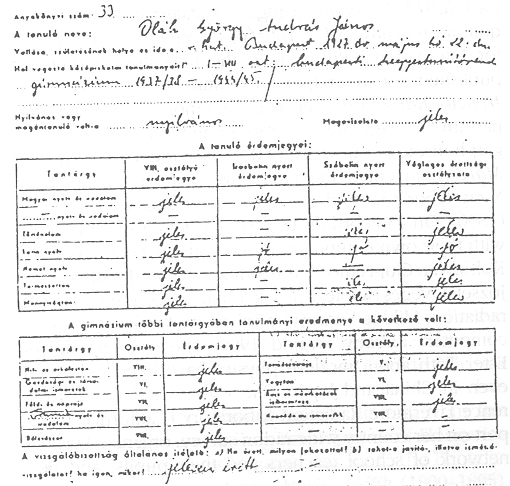 Anyakönyvi szám: 33
A tanuló neve: Oláh György András János
Vallása, születésének helye és ideje: r. kat. Budapest 1927 év május hó 22. án
Hol végezte középiskolai tanulmányait: I-VIII oszt. budapesti
gimnázium 1937/38 - 1944/45.
Nyilvános vagy
magántanuló volt-e nyilvános Magaviselete: jeles
A tanuló érdemjegyei:
Tantárgy VIII. osztályú érdemjegye Írásbelin nyert érdemjegye Szóbelin nyert érdemjegye Végleges érettségi osztályzata
Magyar nyelv és irodalom jeles jeles jeles jeles
— nyelv és irodalom — — — —
Történelem jeles — jeles jeles
Latin nyelv jeles jó jó jó
Német nyelv jeles jeles — jeles
Természettan jeles — jeles jeles
Mennyiségtan jeles — jeles jeles
A gimnázium többi tantárgyában tanulmányi eredménye a következő volt:
Tantárgy Osztály Érdemjegy Tantárgy Osztály Érdemjegy
Hit- és erkölcstan VIII. jeles Természetrajz V. jeles
Gazdasági és társadalmi ismeretek VI. jeles Vegytan VI. jeles
Föld- és néprajz VII. jeles VIII. jeles
nyelv és irodalom VIII. jeles —
Bölcsészet VIII. jeles
A vizsgálóbizottság általános ítélete: a) Ha érett, milyen fokozattal? b) tehet-e javító-, illetve ismétlő-
vizsgálatot? ha igen, mikor? jelesen érett —